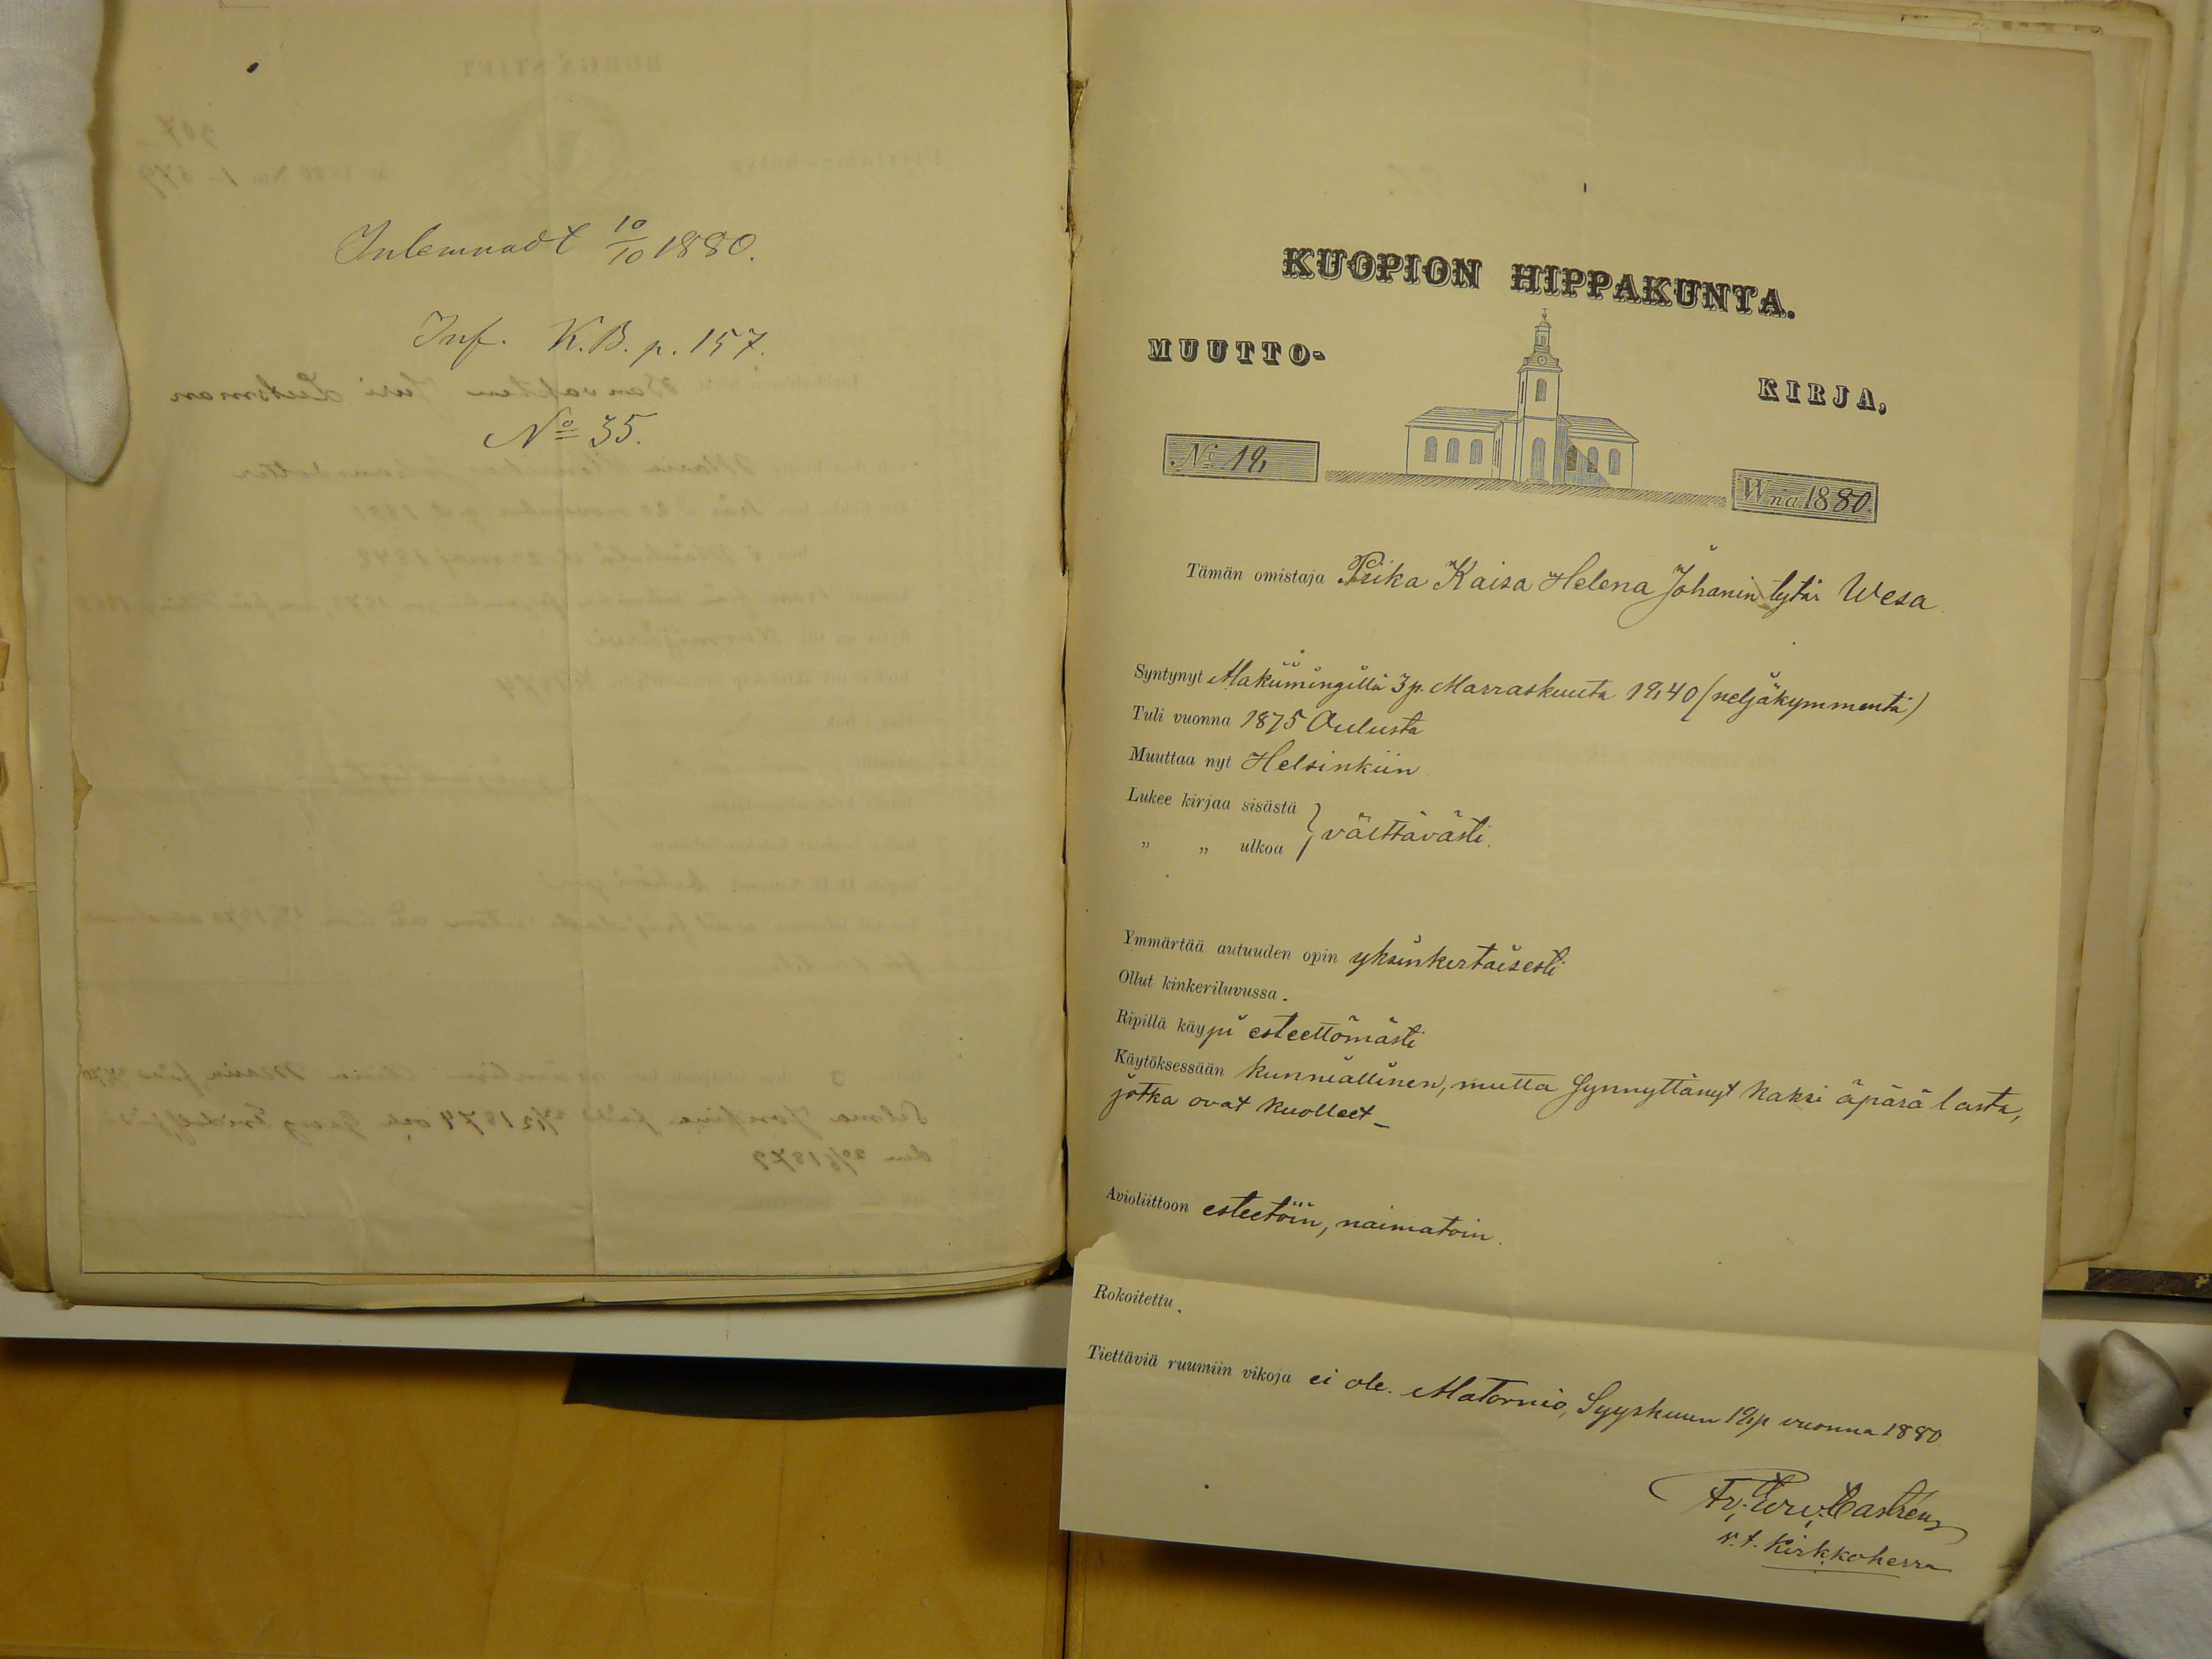 Inlemnadt 10/10 1880.
Inf. K.B. p. 157.
No 35.
KUOPION HIPPAKUNTA.
MUUTTO-
KIRJA,
No 18,
Wna 1880.
Tämän omistaja Piika Kaisa Helena Johanin tytär Wesa
Syntynyt Alakiimingillä 3 p. Marraskuuta 1840 (neljäkymmentä)
Tuli vuonna 1875 Oulusta
Muuttaa nyt Helsinkiin
Lukee kirjaa sisästä
„ „ ulkoa } välttävästi.
Ymmärtää autuuden opin yksinkertaisesti
Ollut kinkeriluvussa.
Ripillä käypi esteettömästi
Käytöksessään kunniallinen, mutta synnyttänyt kaksi äpärä lasta,
jotka ovat kuolleet_
Avioliittoon esteetöin, naimatoin.
Rokoitettu.
Tiettäviä ruumiin vikoja ei ole. Alatornio, Syyskuun 18 p vuonna 1880.
Castrén
v. t. Kirkkoherra